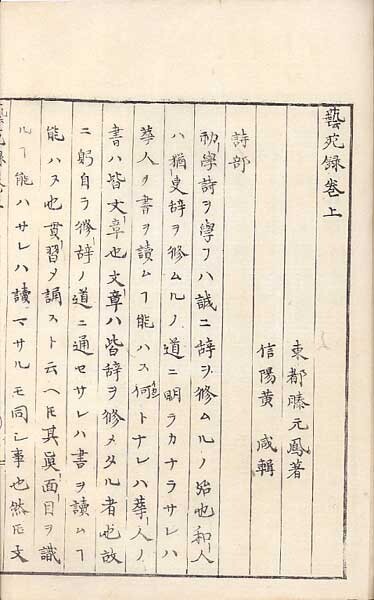 藝苑録卷上
東都滕元鳳著
信陽黄咸輯
詩部
初學詩ヲ學フハ誠ニ辞ヲ修ムルノ始也和人
ハ猶更辞ヲ修ムルノ道ニ明ラカナラサレハ
華人ヲ書ヲ讀ムヿ能ハス何トナレハ華人ノ
書ハ皆文章也文章ハ皆辞ヲ修メタル者也故
ニ躬自ラ修辞ノ道ニ通セサレハ書ヲ讀ムヿ
能ハス也貫習メ誦スト云ヘ𪜈其眞面目ヲ識
ルヿ能ハサレハ讀マサルモ同シ事也然𪜈文